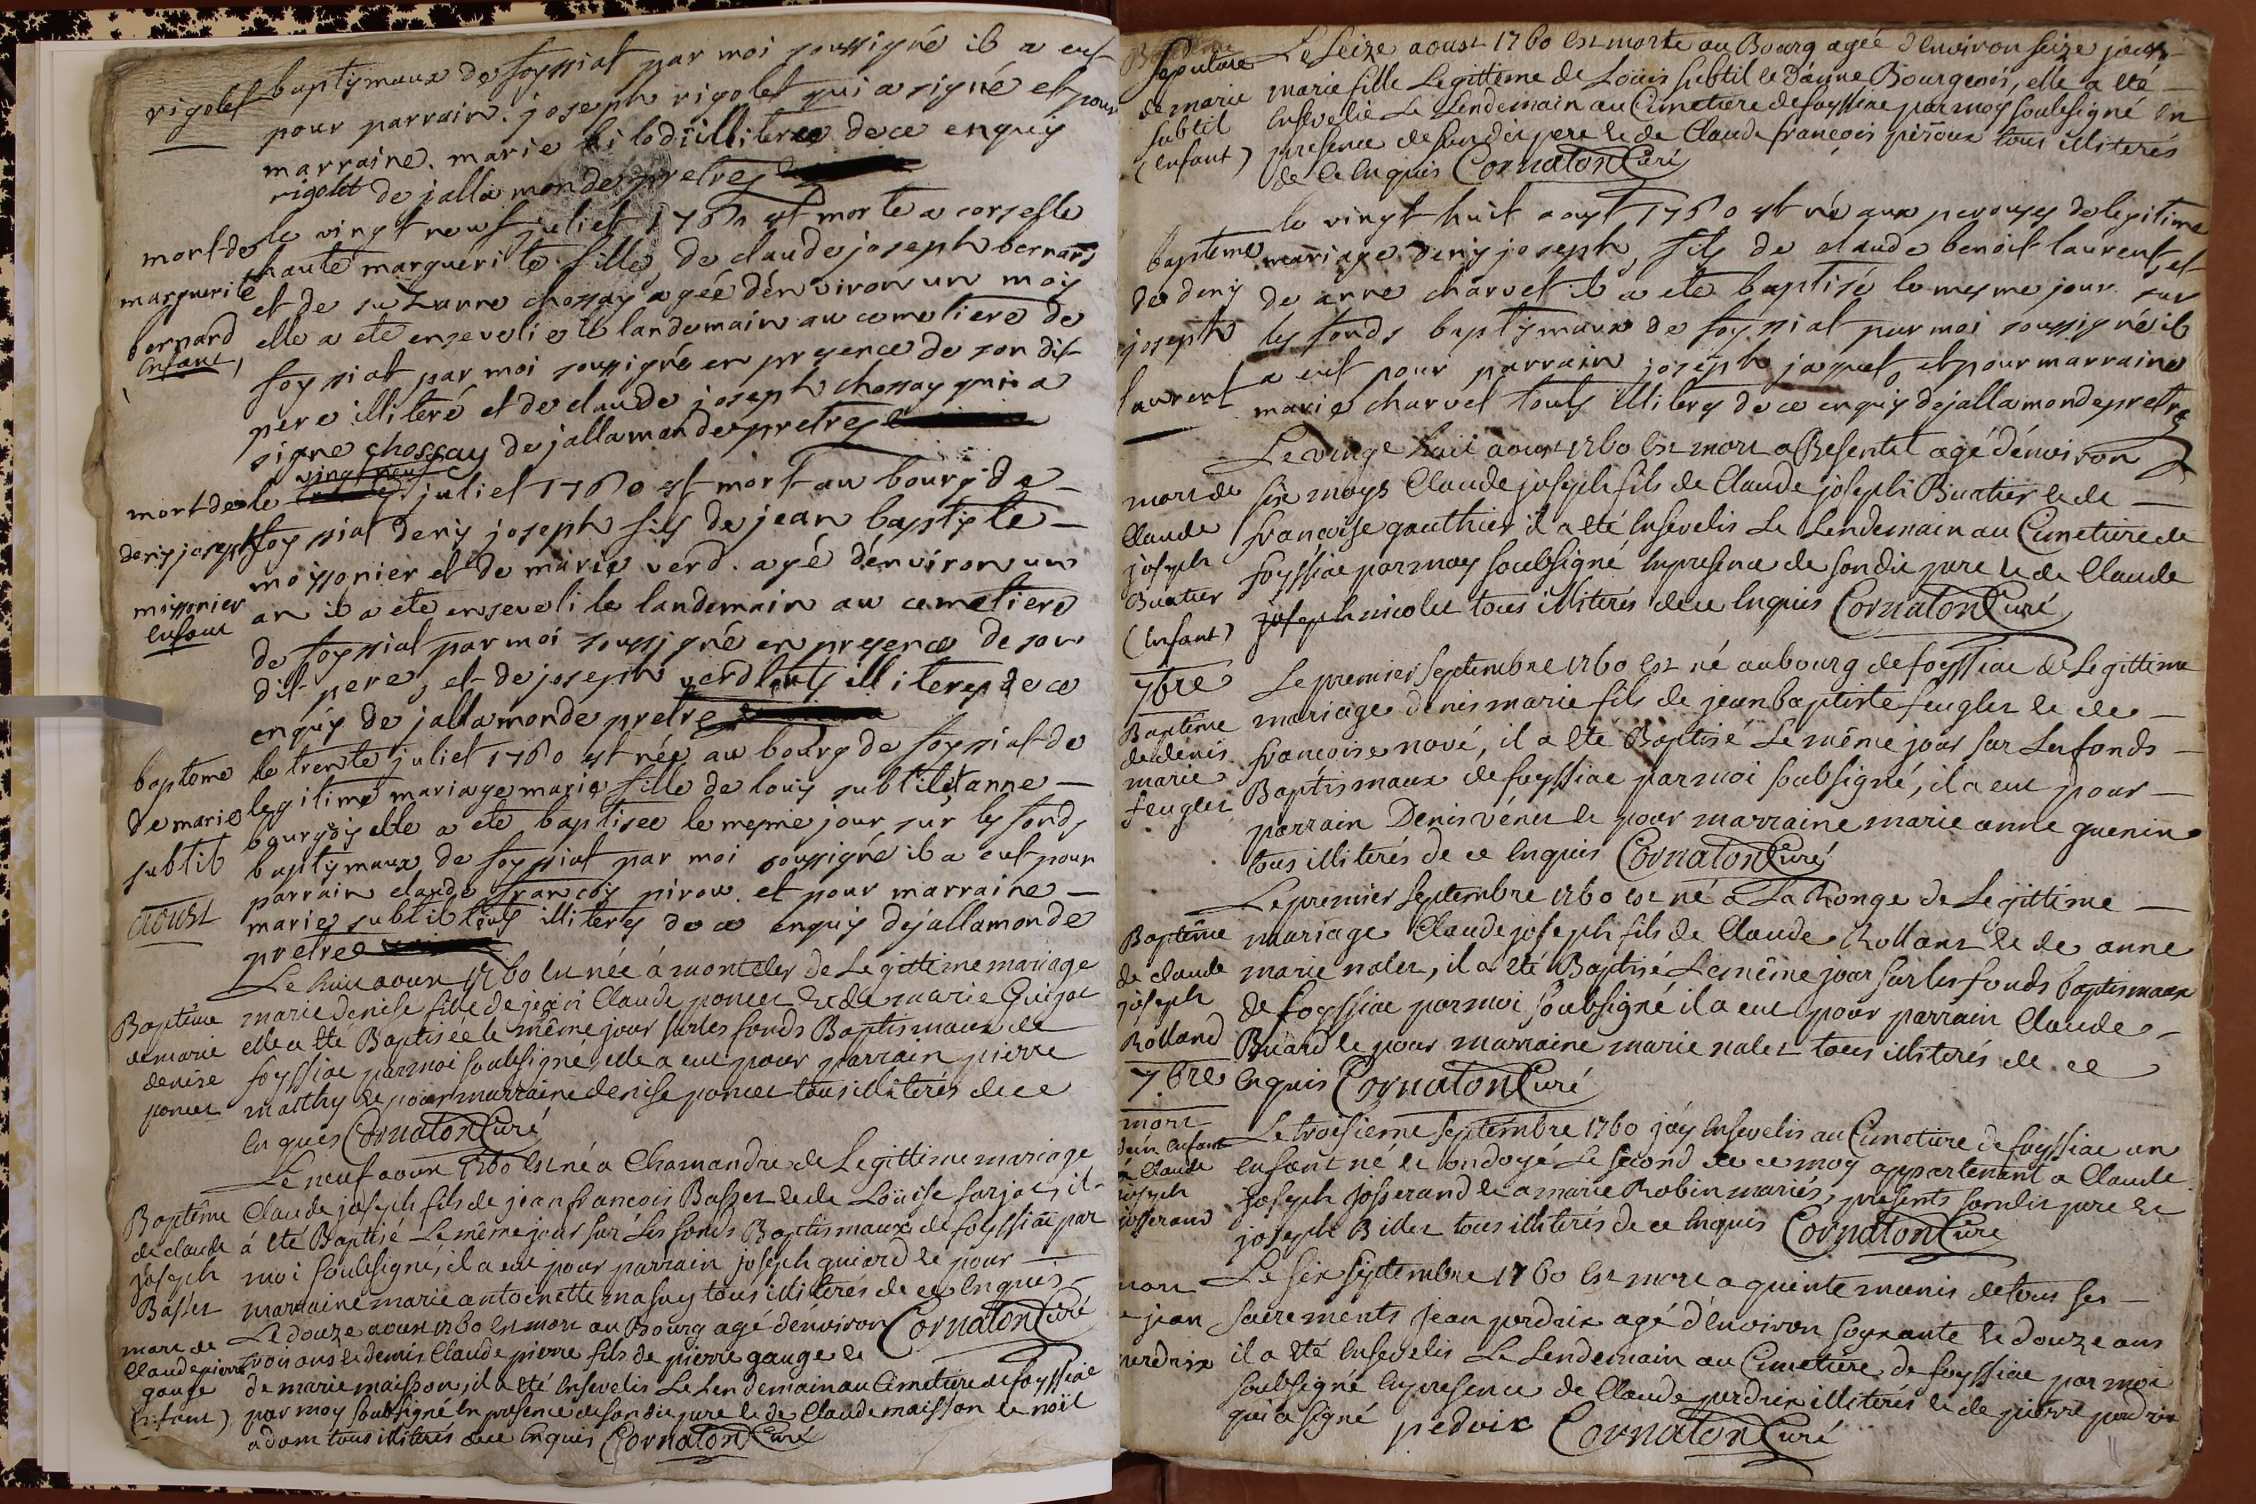 rigolet
baptismaux de foyssiat par moi soussigné il a eut
pour parrain. joseph rigolet qui a signé et pour
marraine. marie illiteree de ce enquis
rigolet de jallamonde pretre
mort de
marguerite
bernard
Enfant
le vingt neuf juliet 1760 est morte a corcelle
haute marguerite fille de claude joseph bernard
et de suzanne chossay agée d'environ un moy
elle a ete ensevelie le landemain au cemetiere de
foyssiat par moi soussigné en presence de son dit
pere illiteré et de claude joseph chossay qui a
signe chossay de jallamonde pretre
mort de
denis joseph
missonier
enfant
vingt neuf
le juliet 1760 est mort au bourg de
foyssiat denis joseph fils de jean baptiste
moissonier et de marie verd. agé d'environ un
an il a ete enseveli le landemain au cemetiere
de foyssiat par moi soussigné en presence de son
dit pere, et de joseph verd touts illiteres de ce
enquis de jallamonde pretre
bapteme
de marie
subtil
le trente juliet 1760 est née au bourg de foyssiat de
legitime mariage marie fille de louis subtil et anne
bourgois elle a ete baptisee le mesme jour sur les fonds
baptismaux de foyssiat par moi soussigné il a eut pour
parrain claude francois pirou et pour marraine
marie subtil touts illiteres de ce enquis dejallamonde
pretre
aoust
Baptême
de marie
denise
poncet
Le huit aoust 1760 est née á montcler de Legittime mariage
marie denise fille de jean Claude poncet et de marie Guizot
elle a été Baptisée le même jour sur les fonds Baptismaux de
foyssiac par moi soubsigné, elle a eut pour parrain pierre
matthy et pour marraine denise poncet tous illiterés de ce
enquis Cornaton Curé
Baptême
de claude
joseph
Basset
Le neuf aoust 1760 est né a Chamandre de Legittime mariage
Claude joseph fils de jean francois Basset et de Loüise farjot, il
á été Baptisé Le même jour sur Les fonds Baptismaux de foyssiac par
moi soubsigné, il a eut pour parrain joseph guiard et pour
marraine marie antoinette masuy tous illiterés de ce enquis
Cornaton Curé
mort de
Claude pierre
gauge
(Enfant)
Le douze aoust 1760 est mort au Bourg agé d'environ
trois ans et demis Claude pierre fils de pierre gauge et
de marie maisson, il a été Ensevelis Le Lendemain au Cimetiere de foyssiac
par moy soubsigné En presence de son dit pere et de Claude maisson et noël
adam tous illiterés de ce Enquis Cornaton Curé
Sepulture
de marie
subtil
(enfant)
Le Seize aoust 1760 est morte au Bourg agée d'environ seize jours
marie fille Legittime de Loüis subtil et d'anne Bourgeois, elle a été
Ensevelie Le Lendemain au Cimetiere de foyssiac par moy soubsigné En
presence de sondit pere et de Claude françois piroux tous illiterés
de ce Enquis Cornaton Curé
bapteme
de denis
joseph
laurent
le vingt huit aoust 1760 est né aux perouses de legitime
mariage denis joseph, fils de claude benoit laurent, et
de anne charvet il a ete baptisé le mesme jour sur
les fonds baptismaux de foyssiat par moi soussigné il
a eut pour parrain joseph jaquet, et pour marraine
marie charvet touts illiteres de ce enquis dejallamonde pretre
mort de
Claude
joseph
Buatier
(Enfant)
Le vingt huit aoust 1760 est mort a Besentet agé d'environ
six moys Claude joseph fils de Claude joseph Buatier et de
francoise gauthier il a été Ensevelis Le Lendemain au Cimetiere de
foyssiac par moy soubsigné En presence de son dit pere et de Claude
joseph nicolet tous illiterés de ce Enquis Cornaton Curé
7bre
Baptême
de denis
marie
feuglet
Le premier septembre 1760 est né au bourg de foyssiac de Legittime
mariage denis marie fils de jean baptiste feuglet et de
francoise nové, il a été Baptisé Le même jour sur Les fonds
Baptismaux de foyssiac par moi soubsigné, il a eut pour
parrain Denis vénet et pour marraine marie anne guenin
tous illiterés de ce Enquis Cornaton Curé
Baptême
de claude
joseph
Rolland
Le premier septembre 1760 est né a La Ronge de Legittime
mariage Claude joseph fils de Claude Rolland et de anne
marie nalet, il a été Baptisé Le même jour sur les fonds baptismaux
de foyssiac par moi soubsigné il a eut pour parrain Claude
Buard et pour marraine marie nalet tous illiterés de ce
Enquis Cornaton Curé
7.bre
mort
d'un Enfant
a Claude
joseph
josserand
Le troisieme septembre 1760 j'ay Ensevelis au Cimetiere de foyssiac un
enfant né et ondoyé Le second de ce moy appartenant a Claude
joseph josserand et a marie Robin mariés, presents son dit pere et
joseph Billet tous illiterés de ce Enquis Cornaton Curé
mort
jean
perdrix
Le six septembre 1760 est mort a quinte munis de tous ses
sacrements jean perdrix agé d'environ soyxante et douze ans
il a été Ensevelis Le Lendemain au Cimetiére de foyssiac par moi
soubsigné En presence de Claude perdrix illiterés et de pierre perdrix
qui a signé pedrix Cornaton Curé